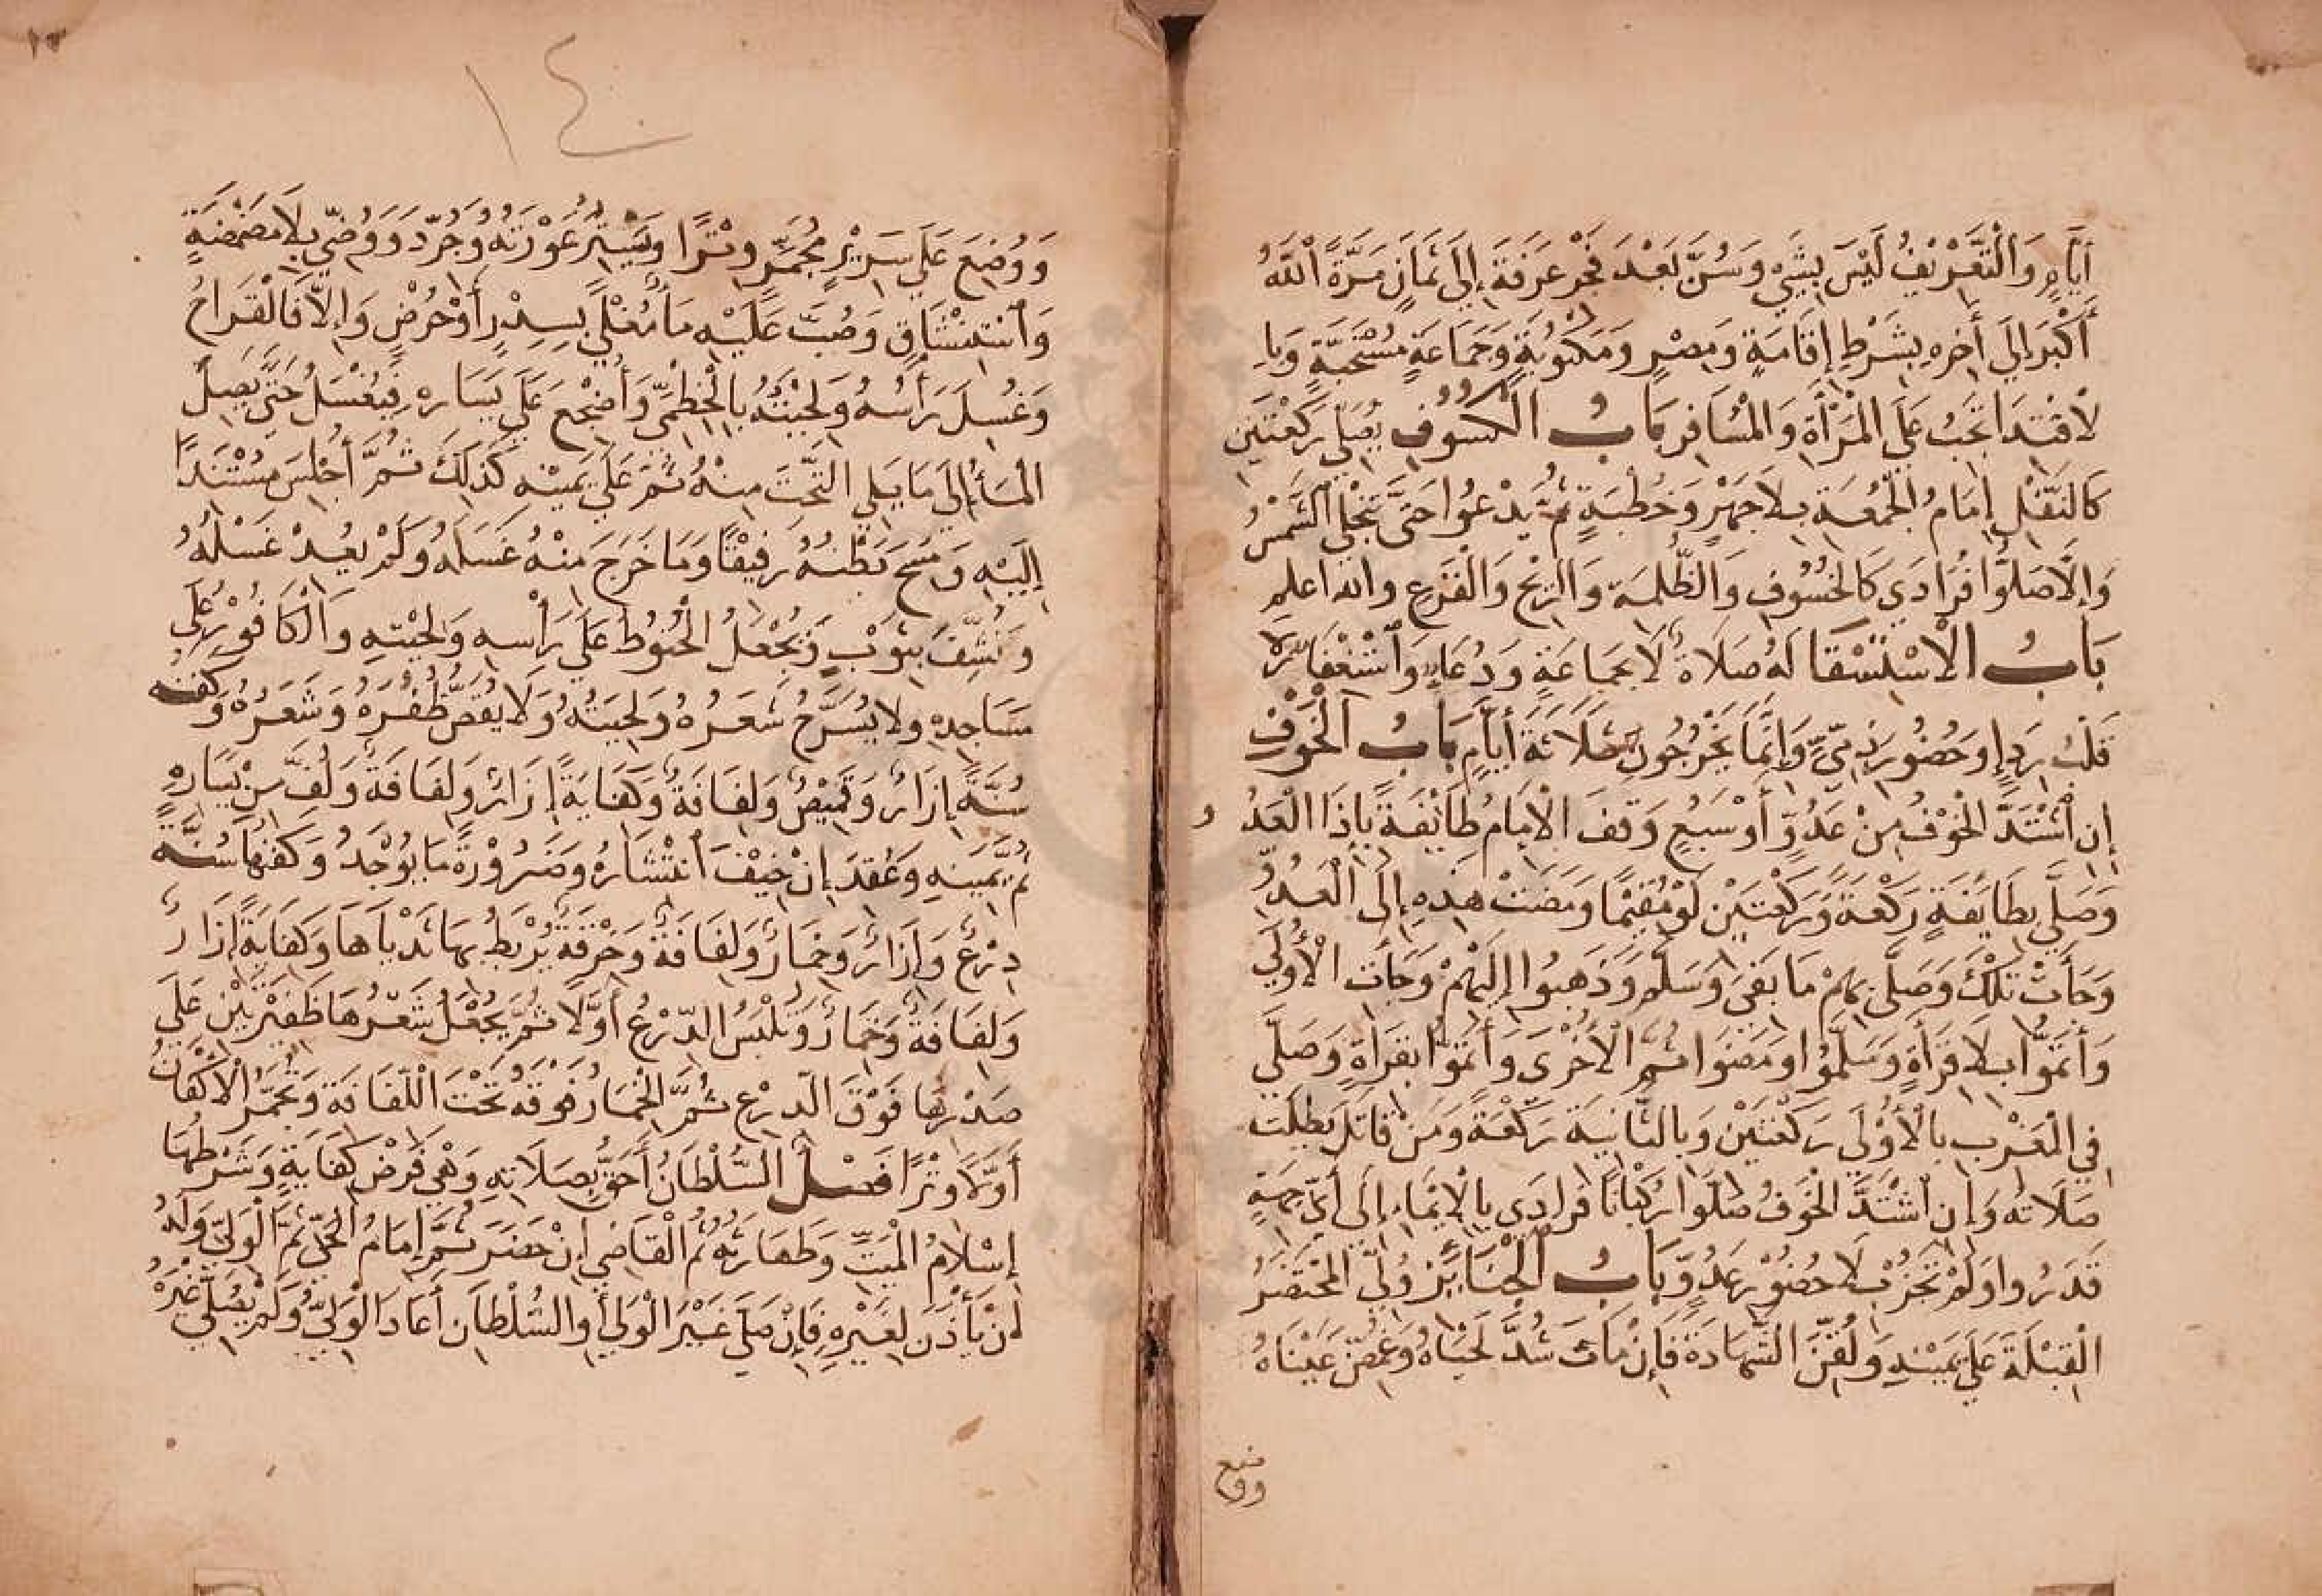 أَيَّامٍ وَالْتَّعْرِيْفُ لَيْسَ بِشَيْءٍ وَسُنَّ بَعْدَ فَجْرِ عَرَفَةَ إِلَى ثَمَانٍ مَرَّةً اللّٰهُ
أَكْبَرُ إِلَي أَخِرِهِ بِشَرْطِ إِقَامَةٍ وَمِصْرٍ وَمَكْتُوْبَةٍ وَجَمَاعَةٍ مُسْتَحَبَّةٍ وَبِا
لْاقْتِدَا تَجَبُ عَلَى الْمَرْأَةِ وَالْمُسَافِرِ بَابُ الْكُسُوْفِ يُصَلِّي رَكْعَتَيْنِ
كَالنَّفْلِ إِمَامُ الْجُمُعَةِ بِلَا جَهْرٍ وَخُطْبَةٍ ثُمَّ يَدْعُوا حَتَّى تَنْجَلِي الشَّمْسُ
وَإِلَّا صَلَّوْا فُرَادَي كَالْخُسُوْفِ وَالظُّلْمَةِ وَالرِّيْحِ وَالْفَزَعِ والله اعلم
بَابُ الْاسْتِسْقَا لَهُ صَلَاةٌ لَا بِجَمَاعَةٍ وَدُعَاءٌ وَاسْتِغْفَارٌ لَا
قَلْبُ رِدَاءٍ وَحُضُوْرُ ذِمِّيٍّ وَإِنَّمَا يَخْرُجُوْنَ ثَلَاثَةَ أَيَّامٍ بَابُ الْخَوْفِ
إِنِ اشْتَدَّ الْخَوْفُ مِنْ عَدُوٍّ أَوْ سَبُعٍ وَقَفَ الْإِمَامُ طَائِفَةً بِإِذَا الْعَدُ و
وَصَلَّي بِطَايِفَةٍ رَكْعَةً وَرَكْعَتَيْنِ لَوْ مُقِيْمًا وَمَضَتْ هٰذِهِ إِلَى الْعَدُوِّ
وَجَأَتْ تِلْكَ وَصَلَّى بِهِمْ مَا بَقَىَ وَسَلَّمَ وَذَهَبُوا إِلَيْهِمْ وَجَأَتِ الْأُوْلَي
وَأَتَمُّوْا بِلَا قِرَأَةٍ وَسَلَّمُوْا وَمَضَوْا ثُمَّ الْأُخْرَى وَأَتَمُّوْا بِقِرَأَةٍ وَصَلَّي
فِي الْمَغْرِبِ بِالْأُوْلَى رَكْعَتَيْنِ وَبِالثَّانِيَةِ رَكْعَةً وَمَنْ قَاتَلَ بَطَلَتْ
صَلَاتُهُ وَإِنِ اشْتَدَّ الْخَوْفُ صَلَّوْا رُكْبَانًا فُرَادَى بِالْإِيْمَاءِ إِلَى أَيِّ جِهَةٍ
قَدَرُوا وَلَمْ تَجُزْ بِلَا حُضُوْرِ عَدُوٍّ بَابُ الْجَنَايِزِ وُلِّيَ الْمُحْتَضَرُ
الْقِبْلَةَ عَلَي يَمِيْنِهِ وَلُقِّنَ الشَّهَادَةَ فَإِنْ مَاتَ شُدَّ لَحْيَاهُ وَغُمِّضَ عَيْنَاهُ
ووضع
١٤
وَوُضِعَ عَلَي سَرِيْرٍ مُجَمَّرٍ وِتْرًا وَيُسْتَرُ عَوْرَتُهُ وَجُرِّدَ وَوُضِّيَ بِلَا مَضْمَضَةٍ
وَاسْتِنْشَاقٍ وَصُبَّ عَلَيْهِ مَاءٌ مُغْلًي بِسِدْرٍ أَوْ حُرْضٍ وَإِلَّا فَالْقَرَاحُ
وَغُسِلَ رَأْسُهُ وَلِحْيَتُهُ بِالْخِطْمِيِّ وَأُضْجِعَ عَلَي يَسَارِهِ فَيُغْسَلُ حَتَّى يَصِلَ
الْمَأُ إِلَي مَا يَلِي التَّحْتَ مِنْهُ ثُمَّ عَلَي يَمِيْنِهِ كَذٰلِكَ ثُمَّ أُجْلِسَ مُسْتَنَدًا
إِلَيْهِ وَمُسِحَ بَطْنُهُ رَفِيْقًا وَمَا خَرَجَ مِنْهُ غَسَلَهُ وَلَمْ يُعِدْ غَسْلَهُ
وَنُشِّفَ بِثَوْبٍ وَيُجْعَلُ الْحَنُوْطُ عَلَي رَأْسِهِ وَلِحْيَتِهِ وَالْكَافُوْرُ عَلَي
مَسَاجِدِهِ وَلَا يُسَرَّحُ شَعَرُهُ وَلِحْيَتُهُ وَلَا يُقَصُّ ظُفُرُهُ وَشَعَرُهُ وَكَفَنُهُ
سُنَّةً إِزَارٌ وَقَمِيْصٌ وَلِفَافَةٌ وَكَفَايَةً إِزَارٌ وَلِفَافَةٌ وَلُفَّ مِنْ يَسَارِهِ
ثُمَّ يَمِيْنِهِ وَعُقِدَ إِنْ خِيْفَ انْتِشَارُهُ وَضَرُوْرَةً مَا يُوْجَدُ وَكَفَنُهَا سُنَّةً
دِرْعٌ وَإِزَارٌ وَخِمَارٌ وَلِفَافَةٌ وَخِرْقَةٌ يُرْبَطُ بِهَا ثَدْيَاهَا وَكِفَايَةً إِزَارٌ
وَلِفَافَةٌ وَخِمَارٌ وَتُلْبَسُ الدِّرْعُ أَوَّلًا ثُمَّ يُجْعَلُ شَعْرُهَا ظَفِيْرَتَيْنِ عَلَي
صَدْرِهَا فَوْقَ الدِّرْعِ ثُمَّ الْخِمَارُ فَوْقَهُ تَحْتَ اللِّفَافَةِ وَتُجَمَّرُ الْاَكْفَانُ
أَوَّلًا وِتْرًا فَصْلٌ السُّلْطَانُ أَحَقُّ بِصَلَاتِهِ وَهْيَ فَرْضُ كِفَايَةٍ وَشَرْطُهَا
إِسْلَامُ الْمَيِّتِ وَطَهَارَتُهُ ثُمَّ الْقَاضِي إِنْ حَضَرَ ثُمَّ إِمَامُ الْحَيِّ ثُمَّ الْوَلِيُّ وَلَهُ
أَنْ يَأْذَنَ لِغَيْرِهِ فَإِنْ صَلَّي غَيْرُ الْوَلِيِّ وَالسُّلْطَانِ أَعَادَ الْوَلِيُّ وَلَمْ يُصَلِّي غَيْرُهُ